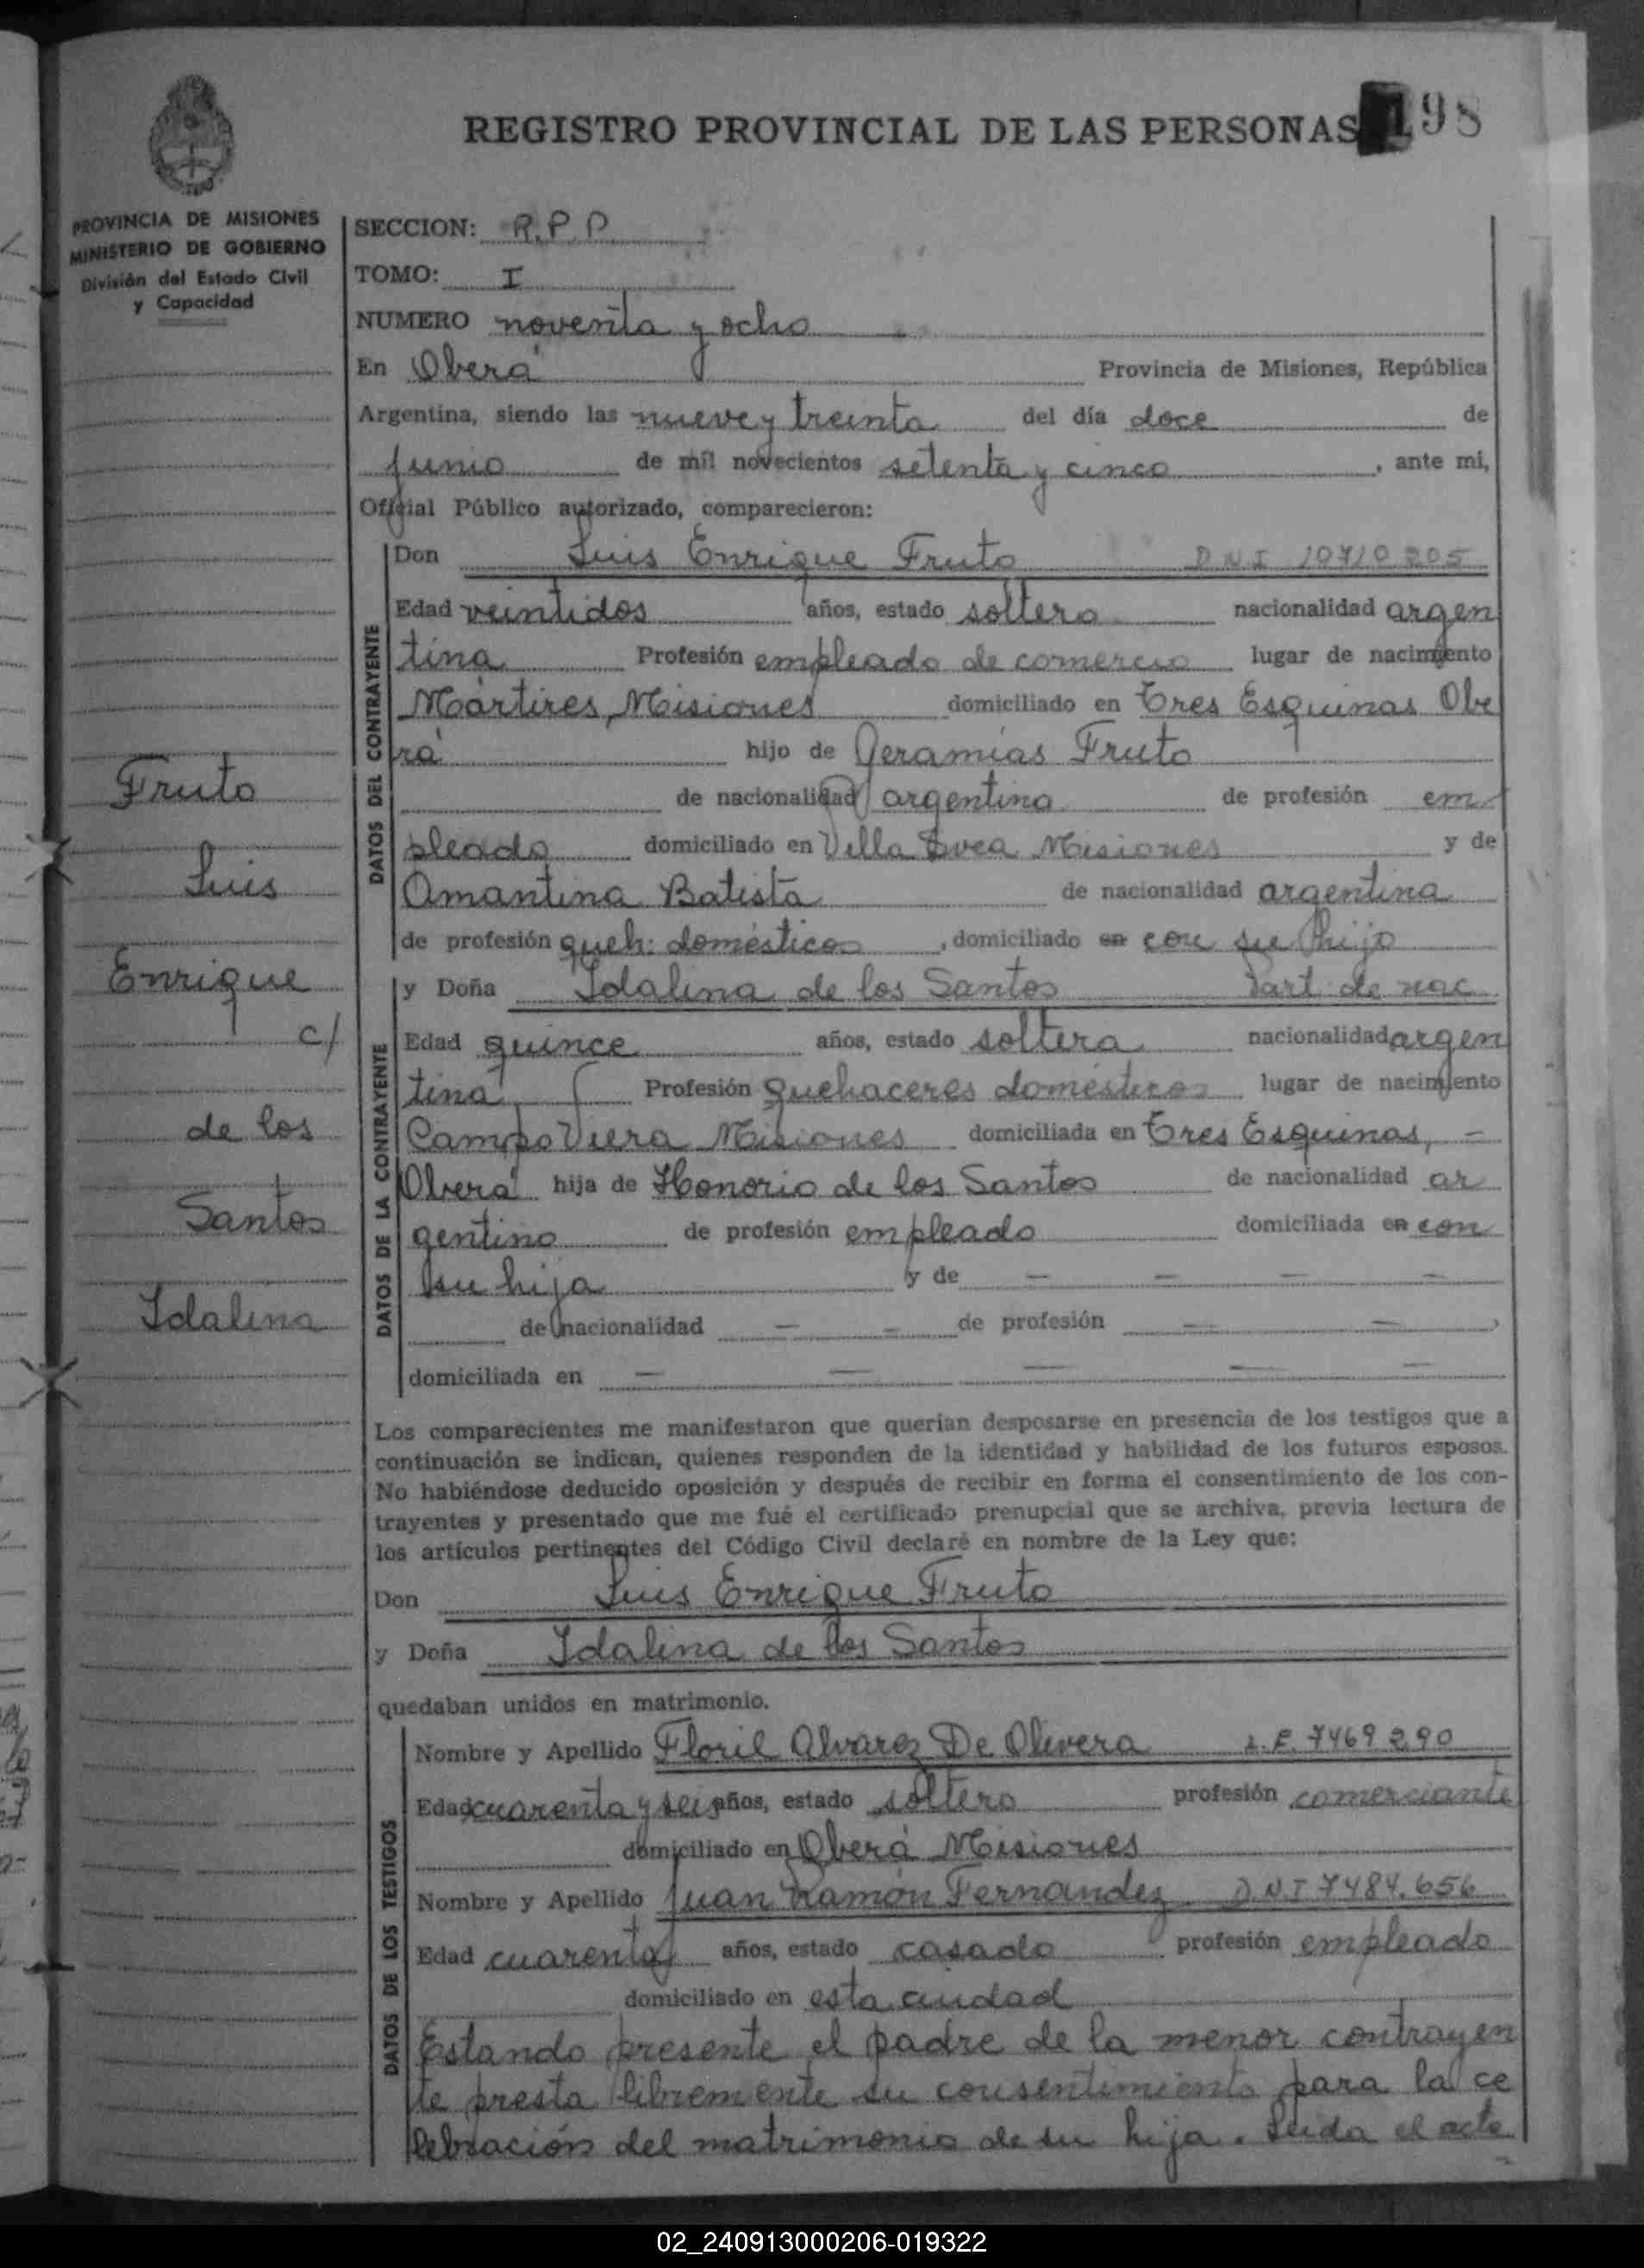 REGISTRO PROVINCIAL DE LAS PERSONAS 198
PROVINCIA DE MISIONES
MINISTERIO DE GOBIERNO
División del Estado Civil
y Capacidad
SECCION: R.P.P
TOMO: I
NUMERO noventa y ocho
En Oberá Provincia de Misiones, República
Argentina, siendo las nueve y treinta del día doce de
junio de mil novecientos setenta y cinco, ante mi,
Oficial Público autorizado, comparecieron:
DATOS DEL CONTRAYENTE
Don Luis Enrique Fruto DNI 10710205
Edad veintidos años, estado soltero nacionalidad argen
tina Profesión empleado de comercio lugar de nacimiento
Mártires, Misiones domiciliado en Tres Esquinas Obe
rá hijo de Geramías Fruto
de nacionalidad argentina de profesión em
pleado domiciliado en Villa Svea Misiones y de
Amantina Batista de nacionalidad argentina
de profesión queh: domésticos, domiciliado en con su hijo
DATOS DE LA CONTRAYENTE
y Doña Idalina de los Santos Part. de nac
Edad quince años, estado soltera nacionalidad argen
tina, Profesión quehaceres domésticos lugar de nacimiento
Campo Viera Misiones domiciliada en Tres Esquinas, -
Oberá hija de Honorio de los Santos de nacionalidad ar
gentino de profesión empleado domiciliada en con
su hija y de - - - -
de nacionalidad - - de profesión - -,
domiciliada en - - - - -
Fruto
Luis
Enrique
c/
de los
Santos
Idalina
Los comparecientes me manifestaron que querían desposarse en presencia de los testigos que a
continuación se indican, quienes responden de la identidad y habilidad de los futuros esposos.
No habiéndose deducido oposición y después de recibir en forma el consentimiento de los con-
trayentes y presentado que me fué el certificado prenupcial que se archiva, previa lectura de
los artículos pertinentes del Código Civil declaré en nombre de la Ley que:
Don Luis Enrique Fruto
y Doña Idalina de los Santos
quedaban unidos en matrimonio.
DATOS DE LOS TESTIGOS
Nombre y Apellido Floril Alvarez De Olivera L.E. 7469290
Edad cuarenta y seis años, estado soltero profesión comerciante
domiciliado en Oberá Misiones
Nombre y Apellido Juan Ramón Fernandez D.N.I 7484.656
Edad cuarenta años, estado casado profesión empleado
domiciliado en esta ciudad
Estando presente el padre de la menor contrayen
te presta libremente su consentimiento para la ce
lebración del matrimonio de su hija. Leida el acta
02_240913000206-019322